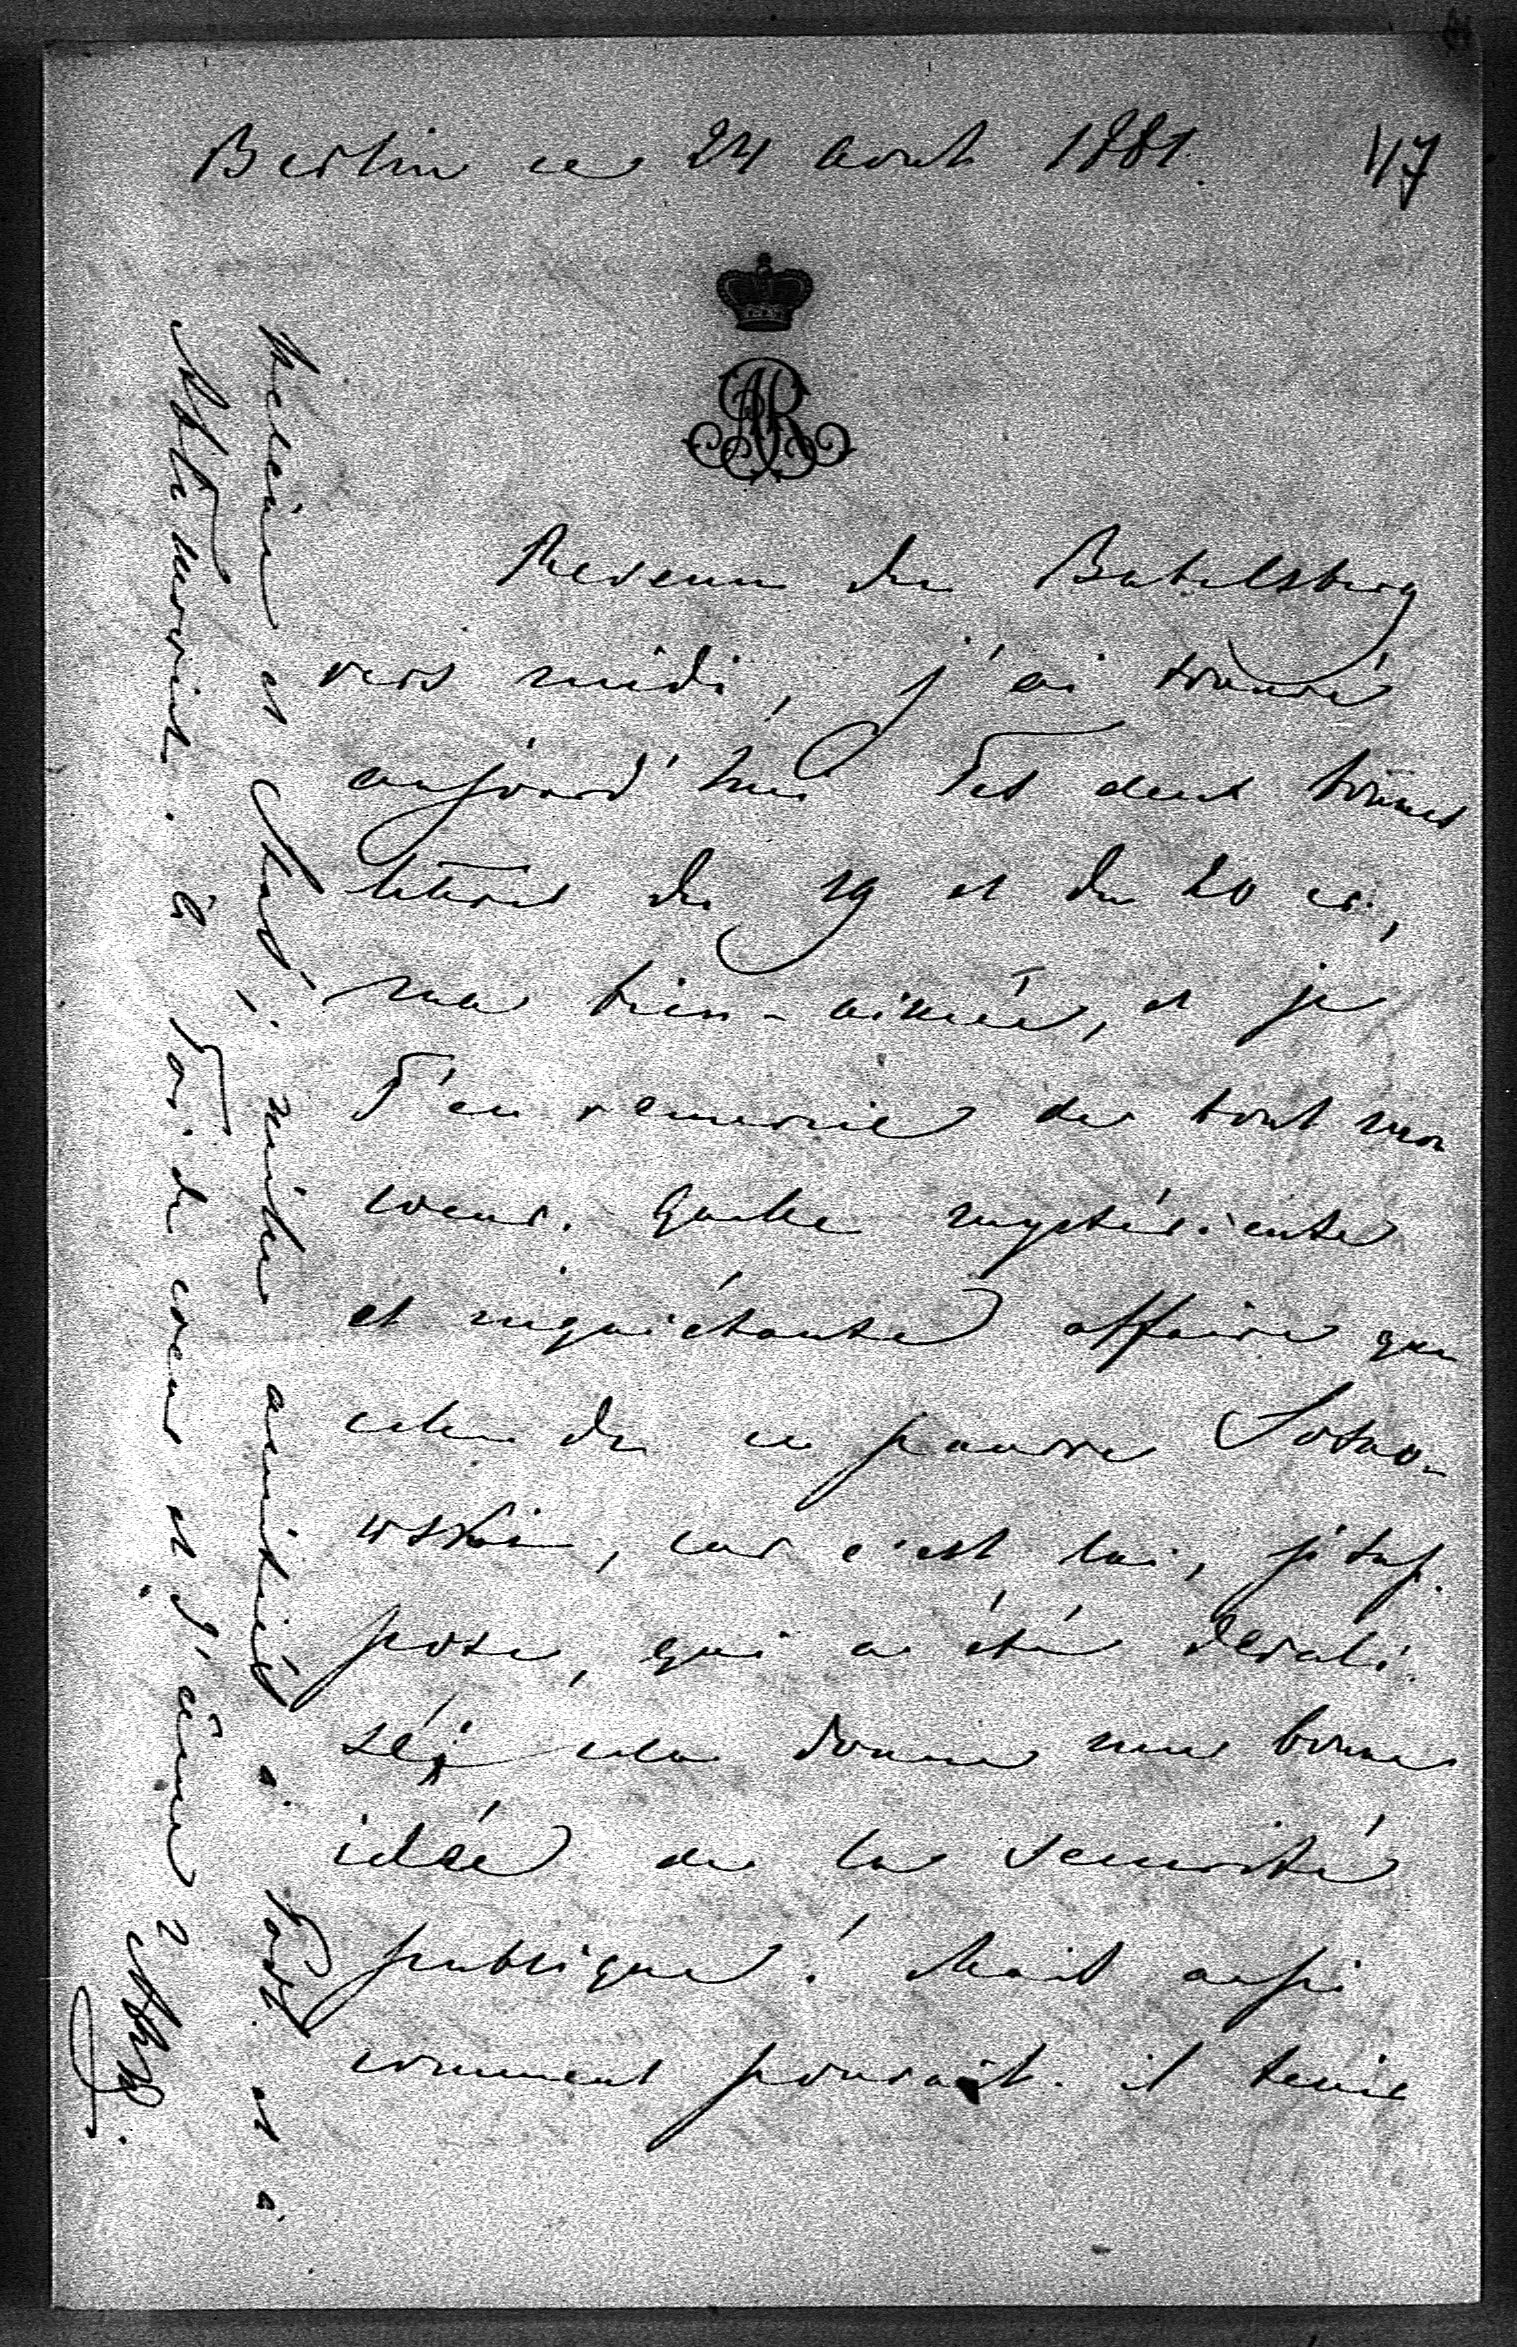 Berlin ce 24 Aout 1881.
47
AR
Revenu du Babelsberg
vers midi, j'ai trouvé
aujourd'hui Tes deux bonnes
lettres du 19 et du 20 cr.,
ma bien-aimée, et je
T'en remercie de tout mon
coeur. Quelle mystérieuse
et inquiétante affaire que
celle de ce pauvre Sosno-
wskii, car c'est lui, je sup-
pose, qui a été dévali-
sé; cela donne une bonne
idée de la sécurité
publique! Mais aussi
comment pouvait-il tenir
Hélène et mille amitiés à
et à
à Toi de coeur et d'âme